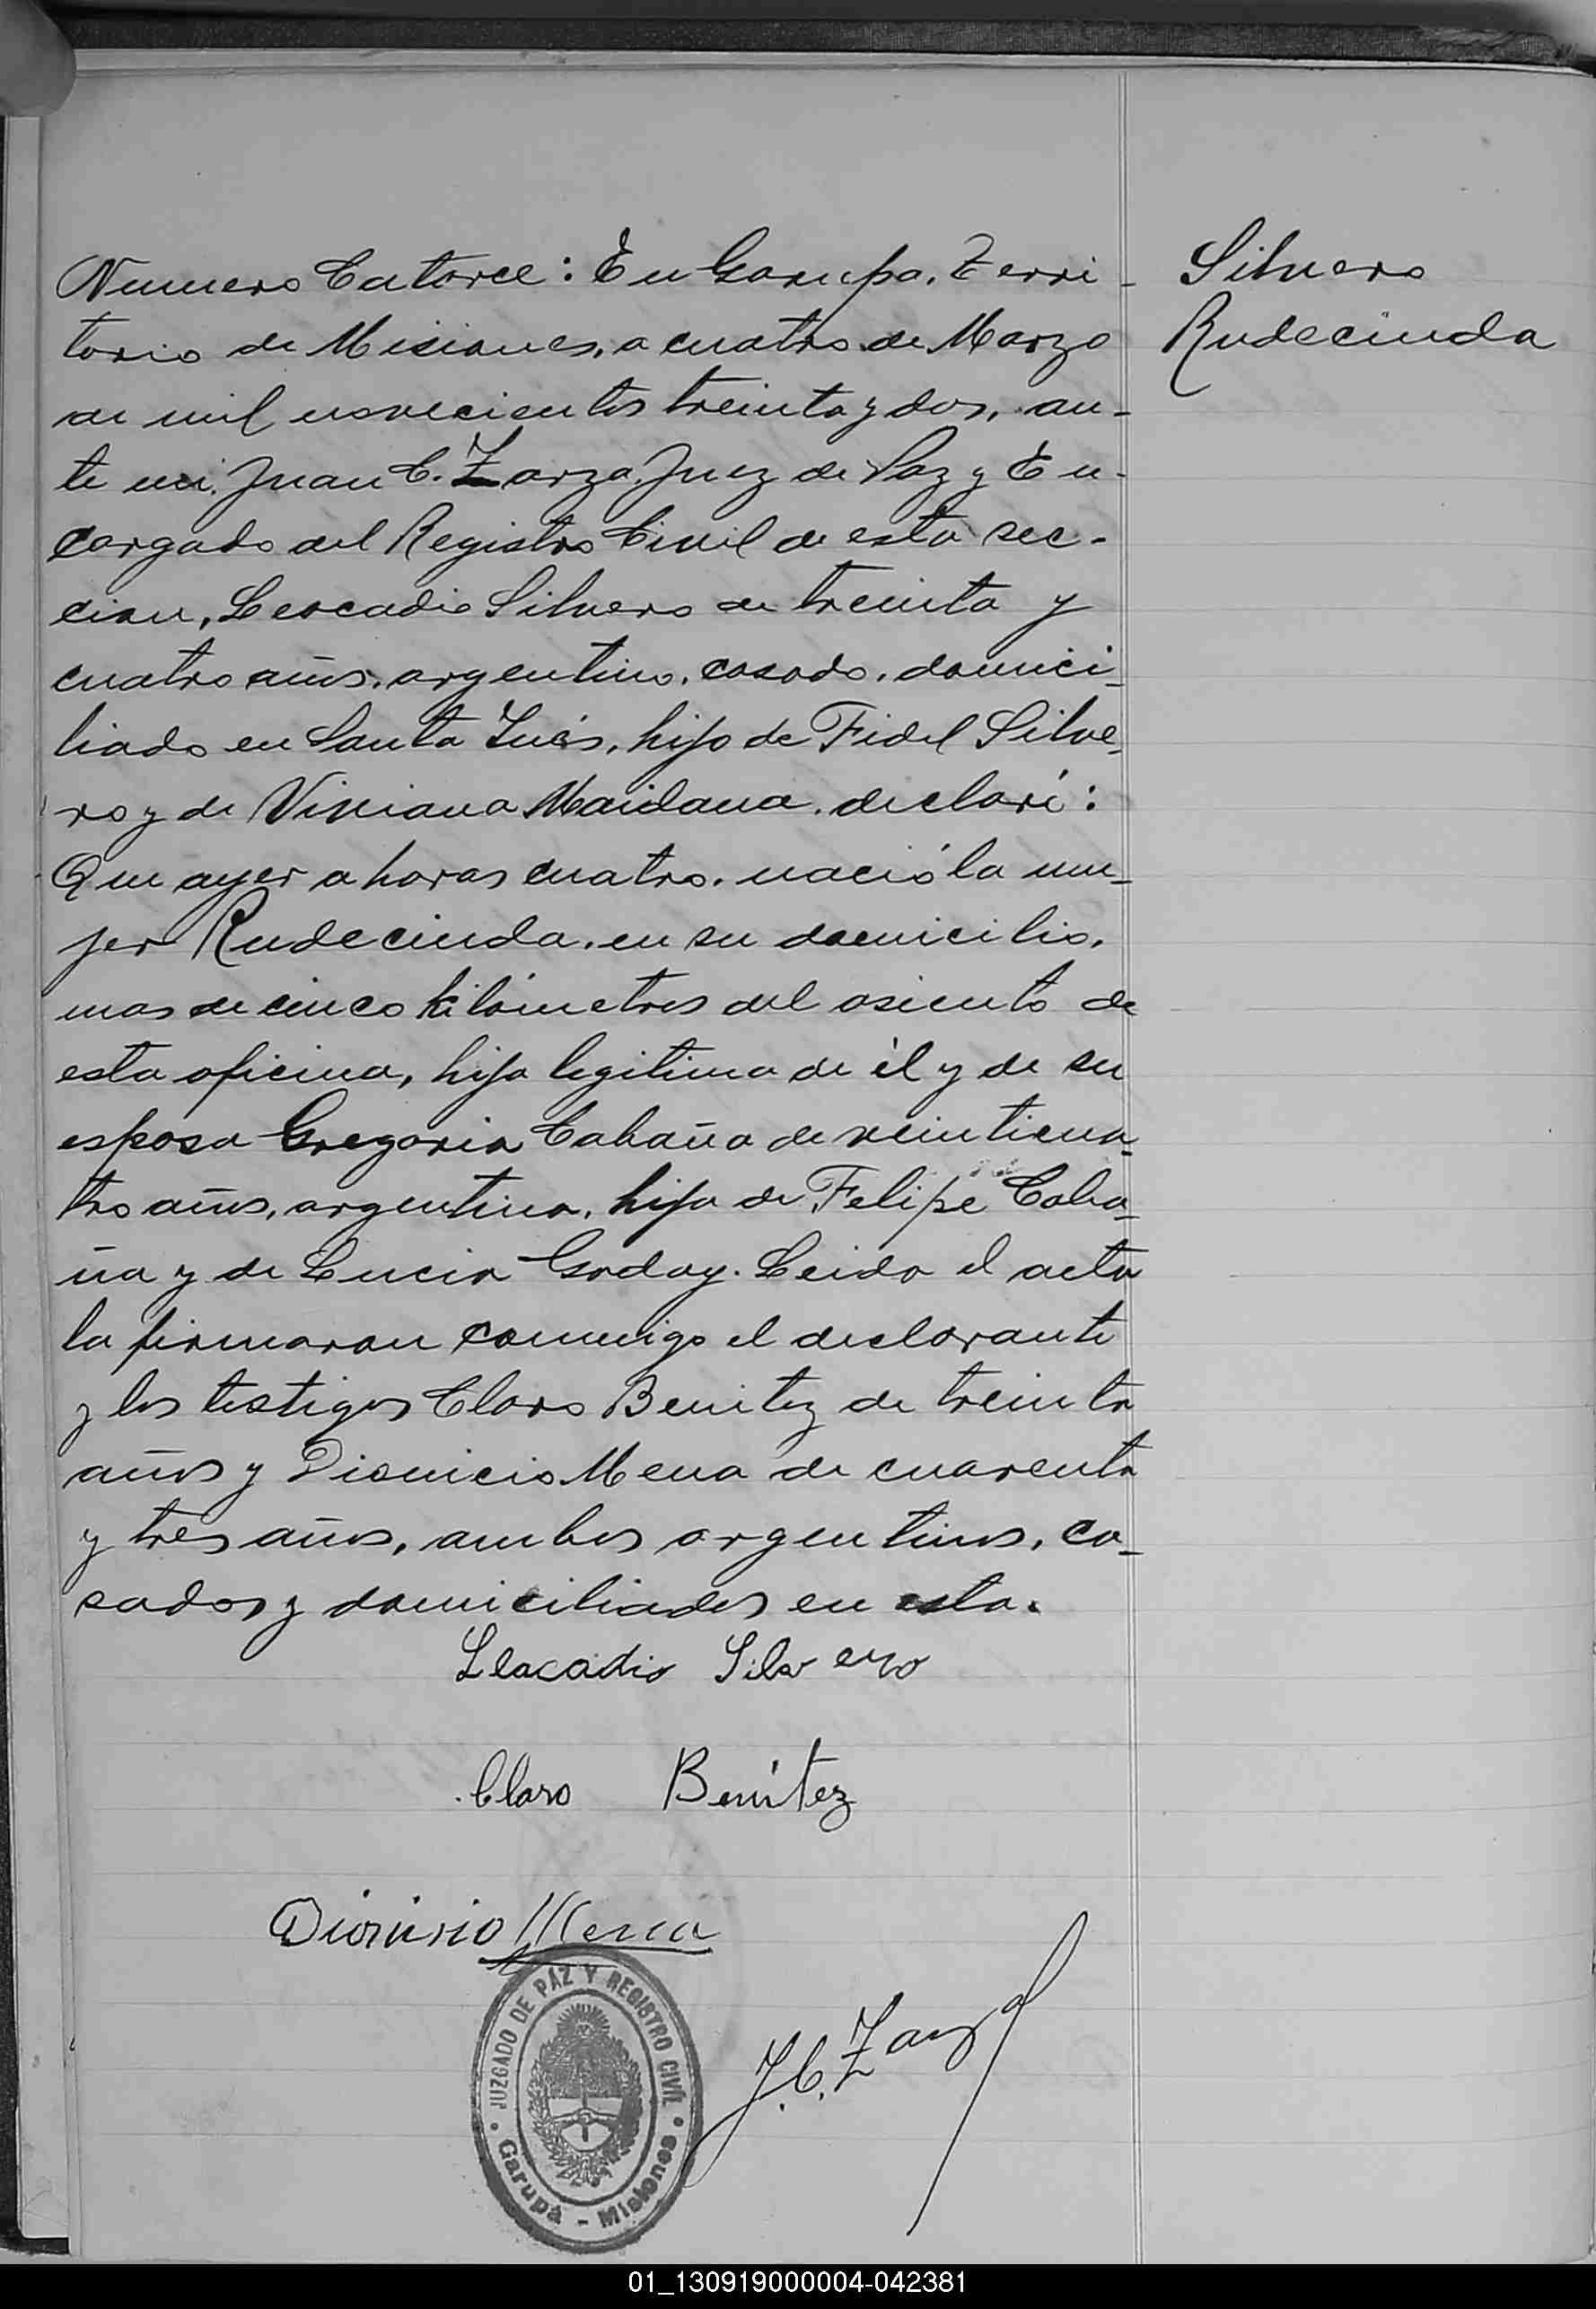 Numero Catorce: En Garupa, Terri-
torio de Misiones, a cuatro de Marzo
de mil novecientos treinta y dos, an-
te mi, Juan C. Zarza, Juez de Paz y En-
cargado del Registro Civil de esta sec-
cion, Leocadio Silvero de treinta y
cuatro años, argentino, casado, domici-
liado en Santa Inés, hijo de Fidel Silve-
ro y de Viviana Maidana, declaró:
Que ayer a horas cuatro, nació la mu-
jer Rudecinda, en su domicilio,
mas de cinco kilómetros del asiento de
esta oficina, hija legitima de él y de su
esposa Gregoria Cabaña de veinticua-
tro años, argentina, hija de Felipe Caba-
ña y de Lucia Godoy. Leida el acta
la firmaron conmigo el declarante
y los testigos Claro Benitez de treinta
años y Dionicio Mena de cuarenta
y tres años, ambos argentinos, ca-
sados y domiciliados en esta.
Silvero
Rudecinda
Leocadio Silvero
Claro Benítez
Dionicio Mena
J. C. Zarza
JUZGADO DE PAZ Y REGISTRO CIVIL
Garupá - Misiones
01_130919000004-042381